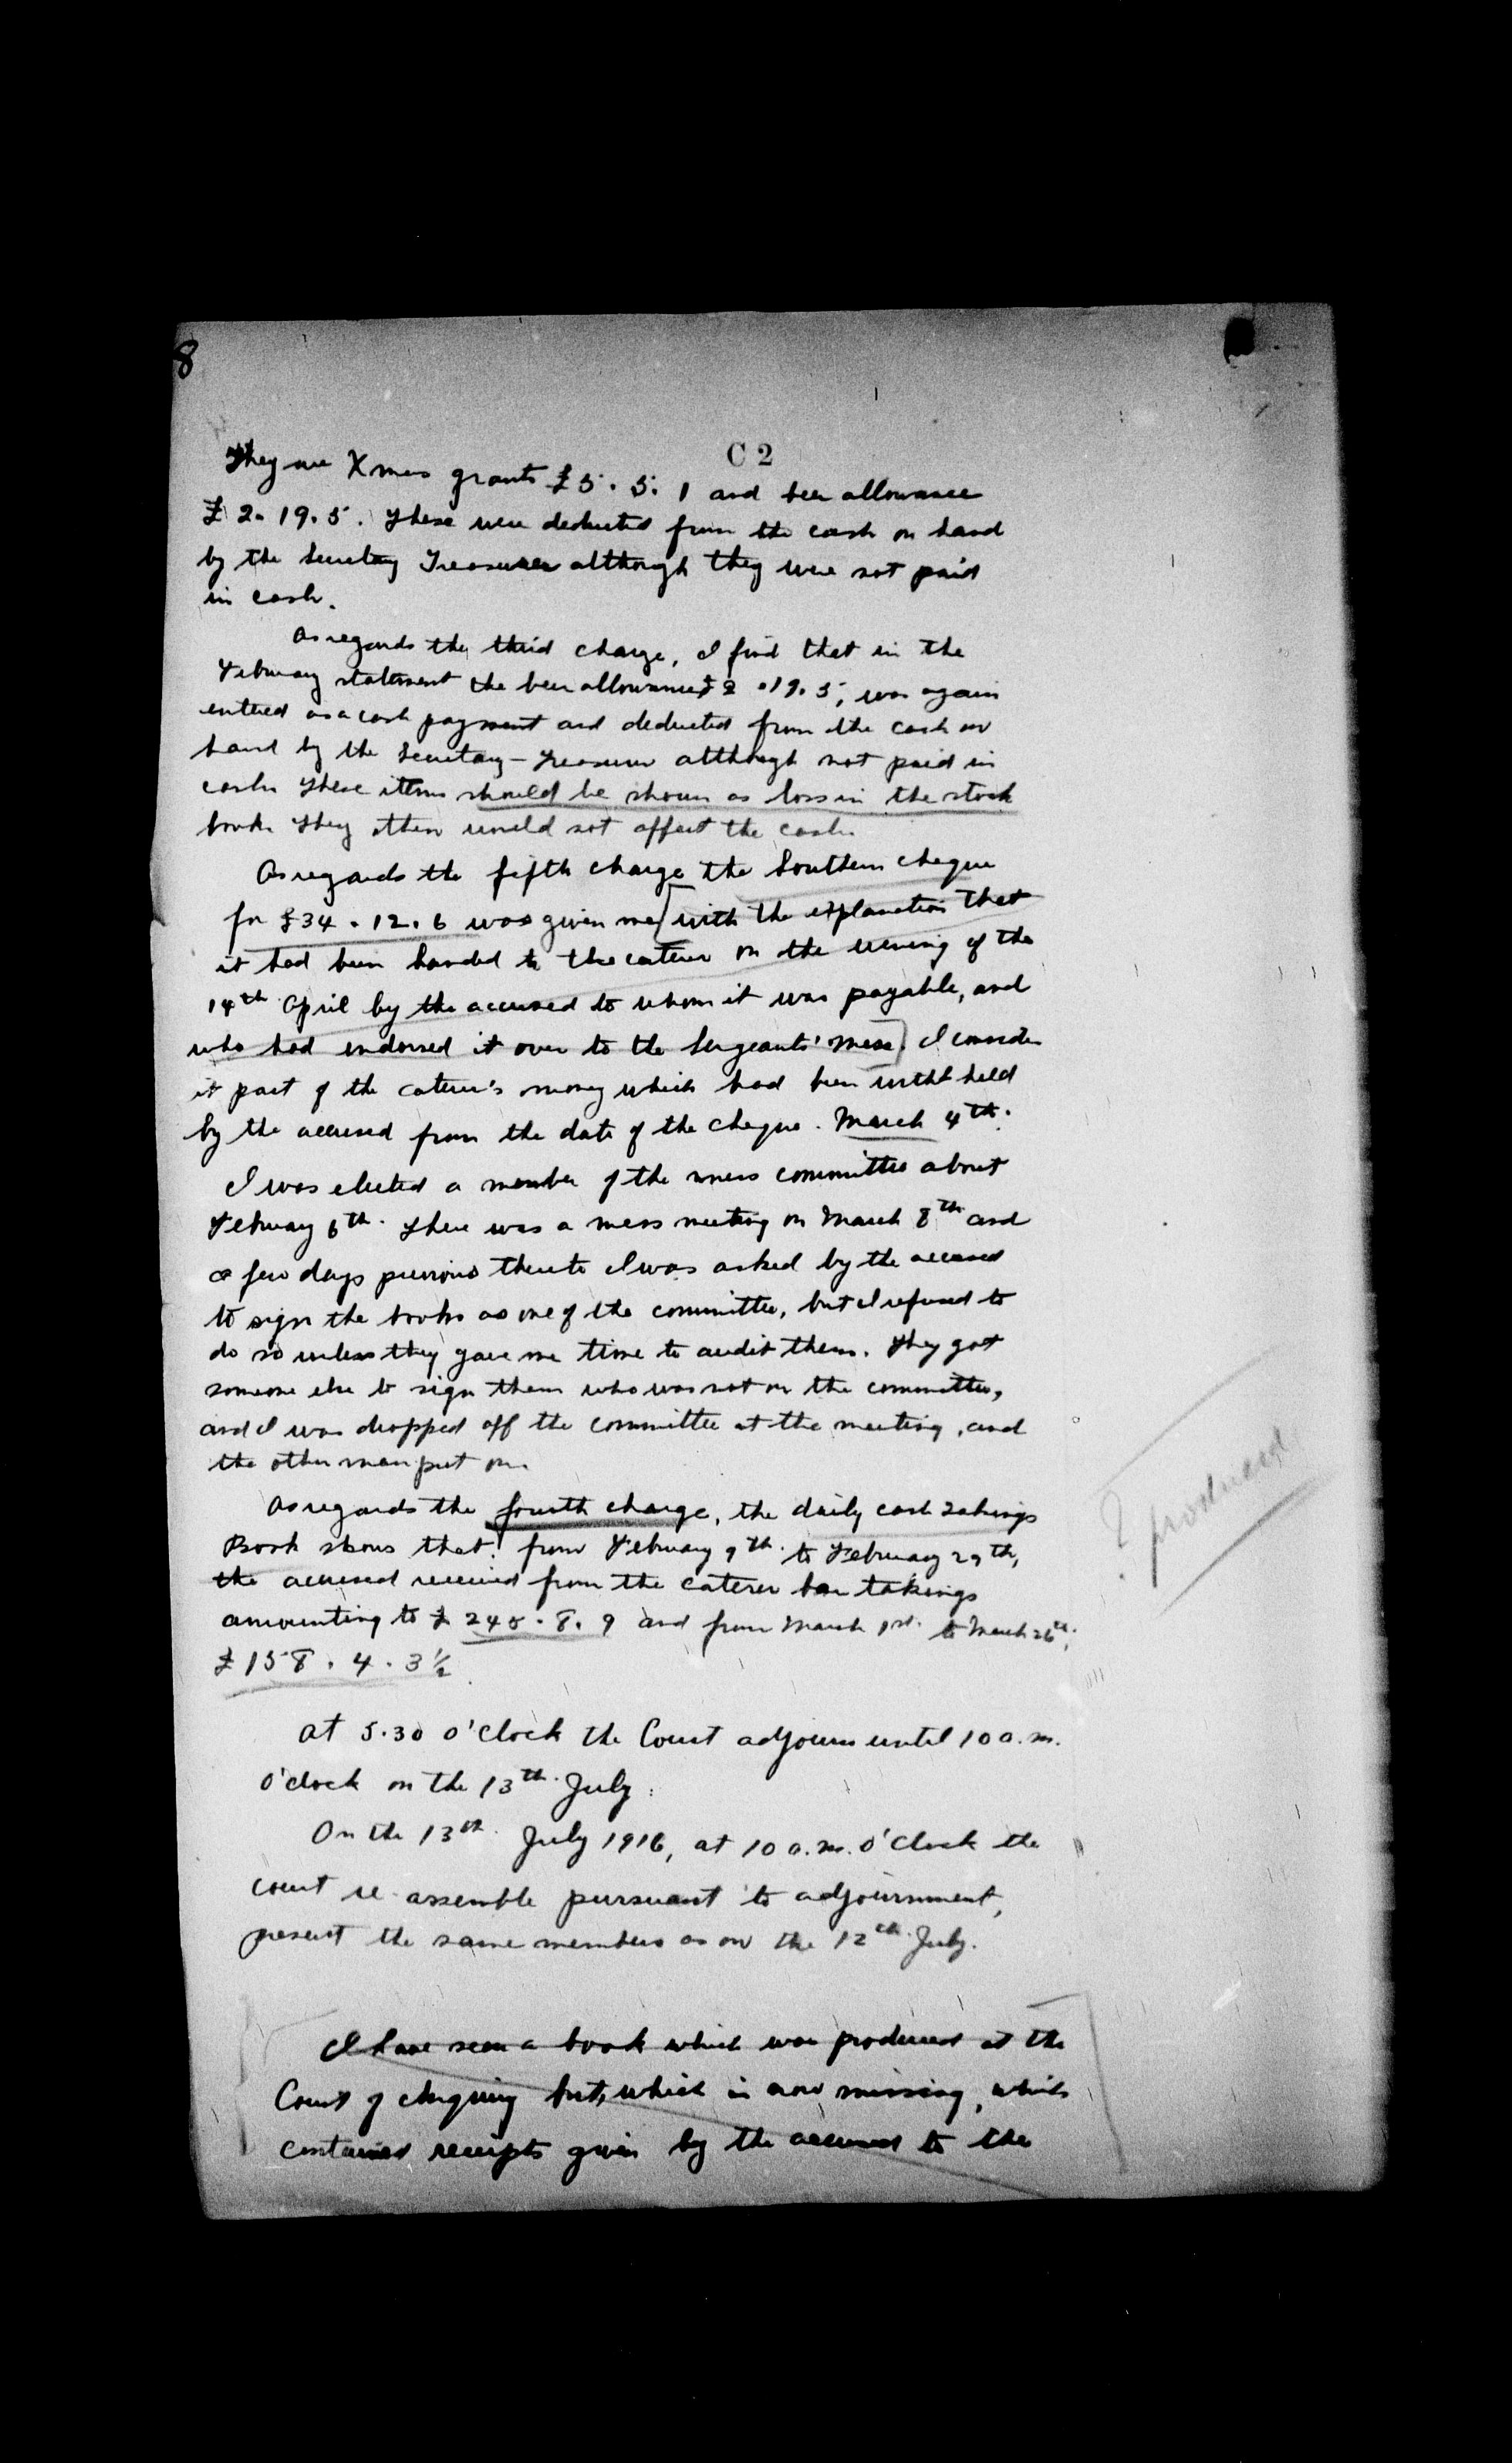 8
C 2
They are Xmas grants £5.5.1 and beer allowance
£2.19.5. These were deducted from the cash on hand
by the Secretary Treasurer although they were not paid
in cash.
As regards the third charge, I find that in the
February statement the beer allowance £2.19.5, was again
entered as a cash payment and deducted from the cash on
hand by the Secretary-Treasurer although not paid in
cash. These items should be shown as loss in the stock
book. They then would not affect the cash.
As regards the fifth charge the Southern cheque
for £34.12.6 was given me [with the explanation that
it had been handed to the caterer on the evening of the
14th April by the accused to whom it was payable, and
who had endorsed it over to the Sergeants' Mess] I consider
it part of the caterer's money which had been withheld
by the accused from the date of the cheque. March 4th.
I was elected a member of the mess committee about
February 6th. There was a mess meeting on March 8th and
a few days previous thereto I was asked by the accused
to sign the books as one of the committee, but I refused to
do so unless they gave me time to audit them. They got
someone else to sign them who was not on the committee,
and I was dropped off the committee at the meeting, and
the other man put on.
As regards the fourth charge, the daily cash takings
Book shows that from February 9th to February 29th,
the accused received from the caterer bar takings
amounting to £245.8.9 and from March 1st to March 26th,
£158.4.3½
? produced
At 5.30 o'clock the Court adjourns until 10 a.m.
o'clock on the 13th July.
On the 13th July 1916, at 10 a.m. o'clock the
court re-assemble pursuant to adjournment,
present the same members as on the 12th July.
I have seen a book which was produced at the
Court of Inquiry but, which is now missing, which
contained receipts given by the accused to the